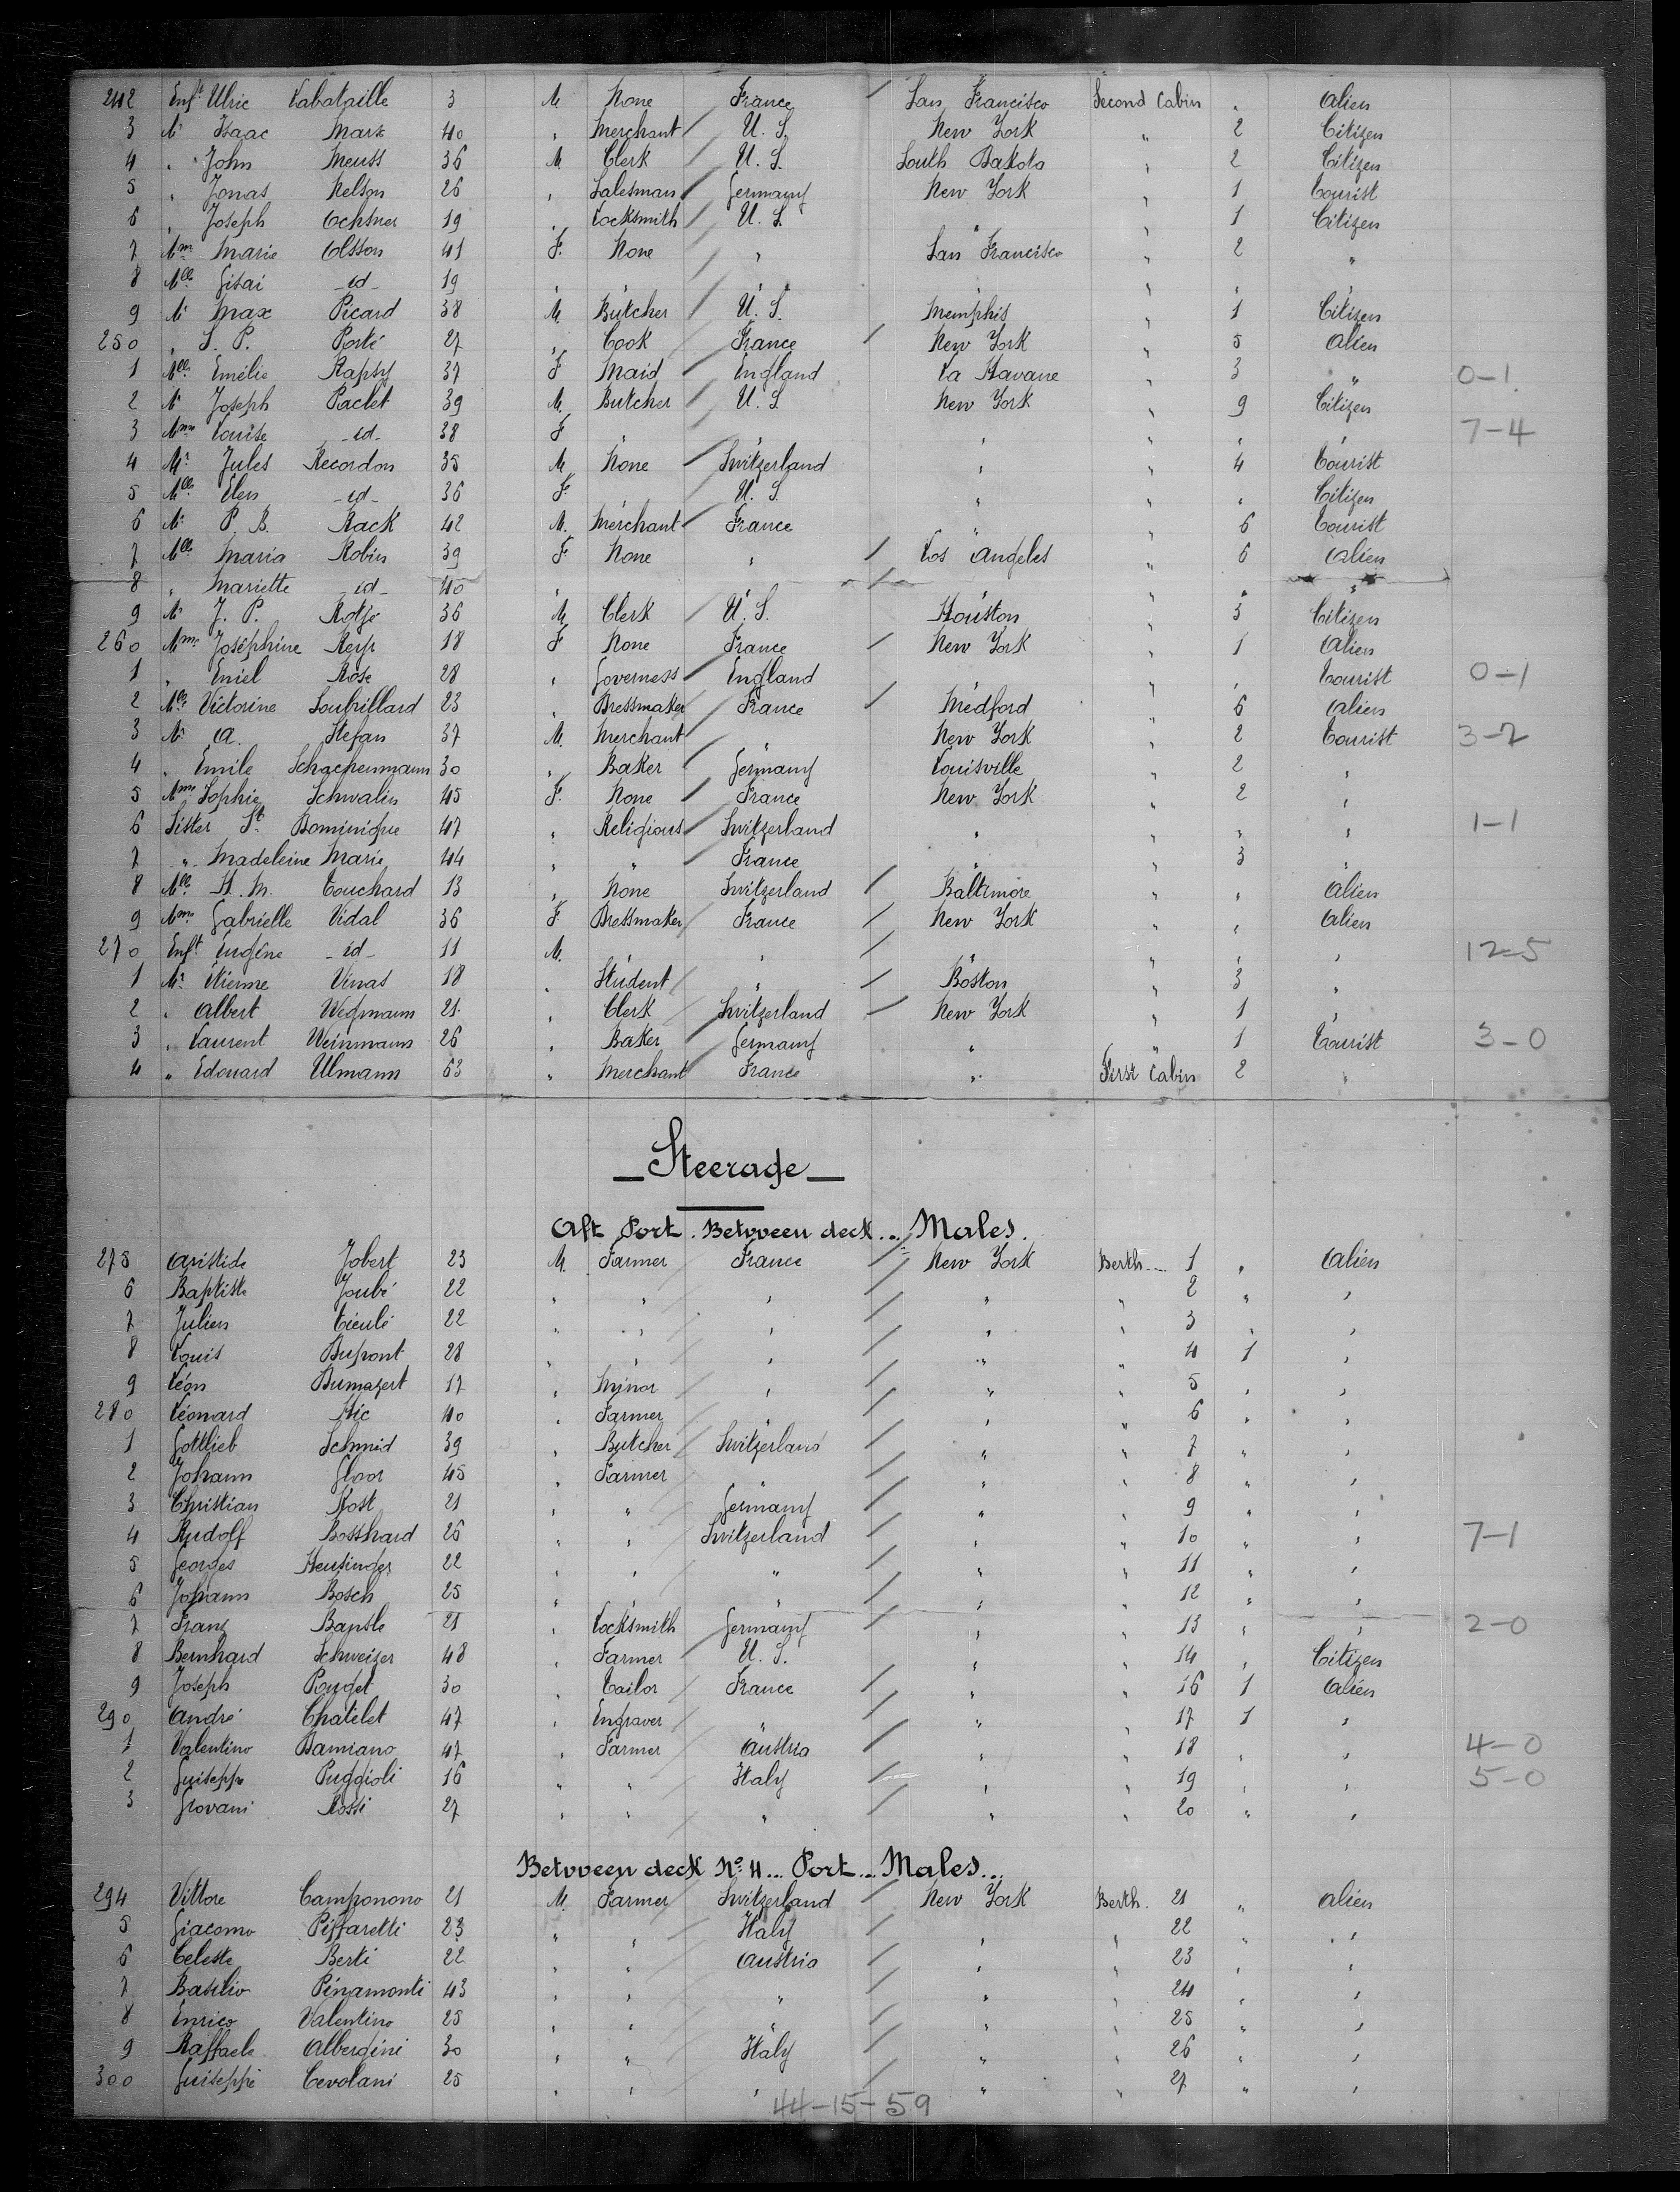 242 Enft Ulric Labataille 3 M None France / San Francisco Second Cabin " Alien
3 Mr Isaac Mark 40 " Merchant / U. S. New York " 2 Citizen
4 " John Meuss 36 M Clerk / U. S. South Dakota " 2 Citizen
5 " Jonas Nelson 26 " Salesman / Germany New York " 1 Tourist
6 " Joseph Ochsner 19 " Locksmith / U. S. " " 1 Citizen
7 Mme Marie Olsson 41 F. None / " San Francisco " 2 "
8 Mlle Gisai _id_ 19 " " / " " " " "
9 Mr Max Picard 38 M. Butcher / U. S. Memphis " 1 Citizen
250 " S. P. Porté 27 " Cook France / New York " 5 Alien
1 Mlle Emélie Rapsy 37 F Maid England La Havane " 3 " 0-1
2 Mr Joseph Paclet 39 M. Butcher / U. S. New York " 9 Citizen
3 Mme Louise _id_ 38 F " " " " " " 7-4
4 Mr Jules Recordon 35 M None / Switzerland " " 4 Tourist
5 Mlle Elen _id_ 36 F. " U. S. " " " Citizen
6 Mr P. B. Rack 42 M. Merchant / France " " 6 Tourist
7 Mlle Maria Robin 39 F None " / Los Angeles " 6 Alien
8 " Mariette _id_ 40 " " " / " " " "
9 Mr J. P. Rotge 36 M Clerk / U. S. Houston " 3 Citizen
260 Mme Joséphine Reyr 18 F None France / New York " 1 Alien
1 " Eniel Rose 28 " Governess / England " " " Tourist 0-1
2 Mlle Victorine Soubrillard 23 " Dressmaker France / Medford " 6 Alien
3 Mr A. Stefan 37 M. Merchant / " New York " 2 Tourist 3-2
4 " Emile Schachenmann 30 " Baker / Germany Louisville " 2 "
5 Mme Sophie Schwalin 45 F. None / France New York " 2 "
6 Sister St. Dominique 47 " Religious / Switzerland " " " " 1-1
7 " Madeleine Marie 44 " " France " " 3 "
8 Mlle H. M. Touchard 13 " None Switzerland / Baltimore " " Alien
9 Mme Gabrielle Vidal 36 F. Dressmaker France / New York " " Alien
270 Enft Eugène _id_ 11 M. " " / " " " " 12-5
1 Mr Etienne Vinas 18 " Student " / Boston " 3 "
2 " Albert Wegmann 21 " Clerk Switzerland / New York " 1 "
3 " Laurent Weinmann 26 " Baker / Germany " " 1 Tourist 3-0
4 " Edouard Ulmann 53 " Merchant / France " First Cabin 2 "
_Steerage_
Aft Port. Between deck... Males.
275 Aristide Jobert 23 M. Farmer France / New York Berth... 1 " Alien
6 Baptiste Joubé 22 " " " / " " 2 " "
7 Julien Cieulé 22 " " " / " " 3 " "
8 Louis Dupont 28 " " " / " " 4 1 "
9 Léon Dumazert 17 " Minor " / " " 5 " "
280 Léonard Hic 40 " Farmer " / " " 6 " "
1 Gottlieb Schmid 39 " Butcher Switzerland / " " 7 " "
2 Johann Gloor 45 " Farmer " / " " 8 " "
3 Christian Kost 21 " " Germany / " " 9 " "
4 Rudolf Bosshard 26 " " Switzerland / " " 10 " " 7-1
5 Georges Heusinger 22 " " " / " " 11 " "
6 Johann Bosch 25 " " " / " " 12 " "
7 Franz Bapstle 21 " Locksmith Germany / " " 13 " " 2-0
8 Bernhard Schweizer 48 " Farmer U. S. " " 14 " Citizen
9 Joseph Pouget 30 " Tailor France / " " 16 1 Alien
290 André Chatelet 47 " Engraver " / " " 17 1 "
1 Valentino Damiano 47 " Farmer Austria / " " 18 " " 4-0
2 Guiseppe Puggioli 16 " " Italy / " " 19 " " 5-0
3 Giovani Rossi 27 " " " / " " 20 " "
Between deck No. 4... Port... Males...
294 Vittore Camponono 21 M. Farmer Switzerland / New York Berth. 21 " Alien
5 Giacomo Piffaretti 23 " " Italy / " " 22 " "
6 Celeste Berti 22 " " Austria / " " 23 " "
7 Basilio Pinamonti 43 " " " / " " 24 " "
8 Enrico Valentino 25 " " " / " " 25 " "
9 Raffaele Albergini 30 " " Italy / " " 26 " "
300 Guiseppe Cevolani 25 " " " / " " 27 " "
44-15-59